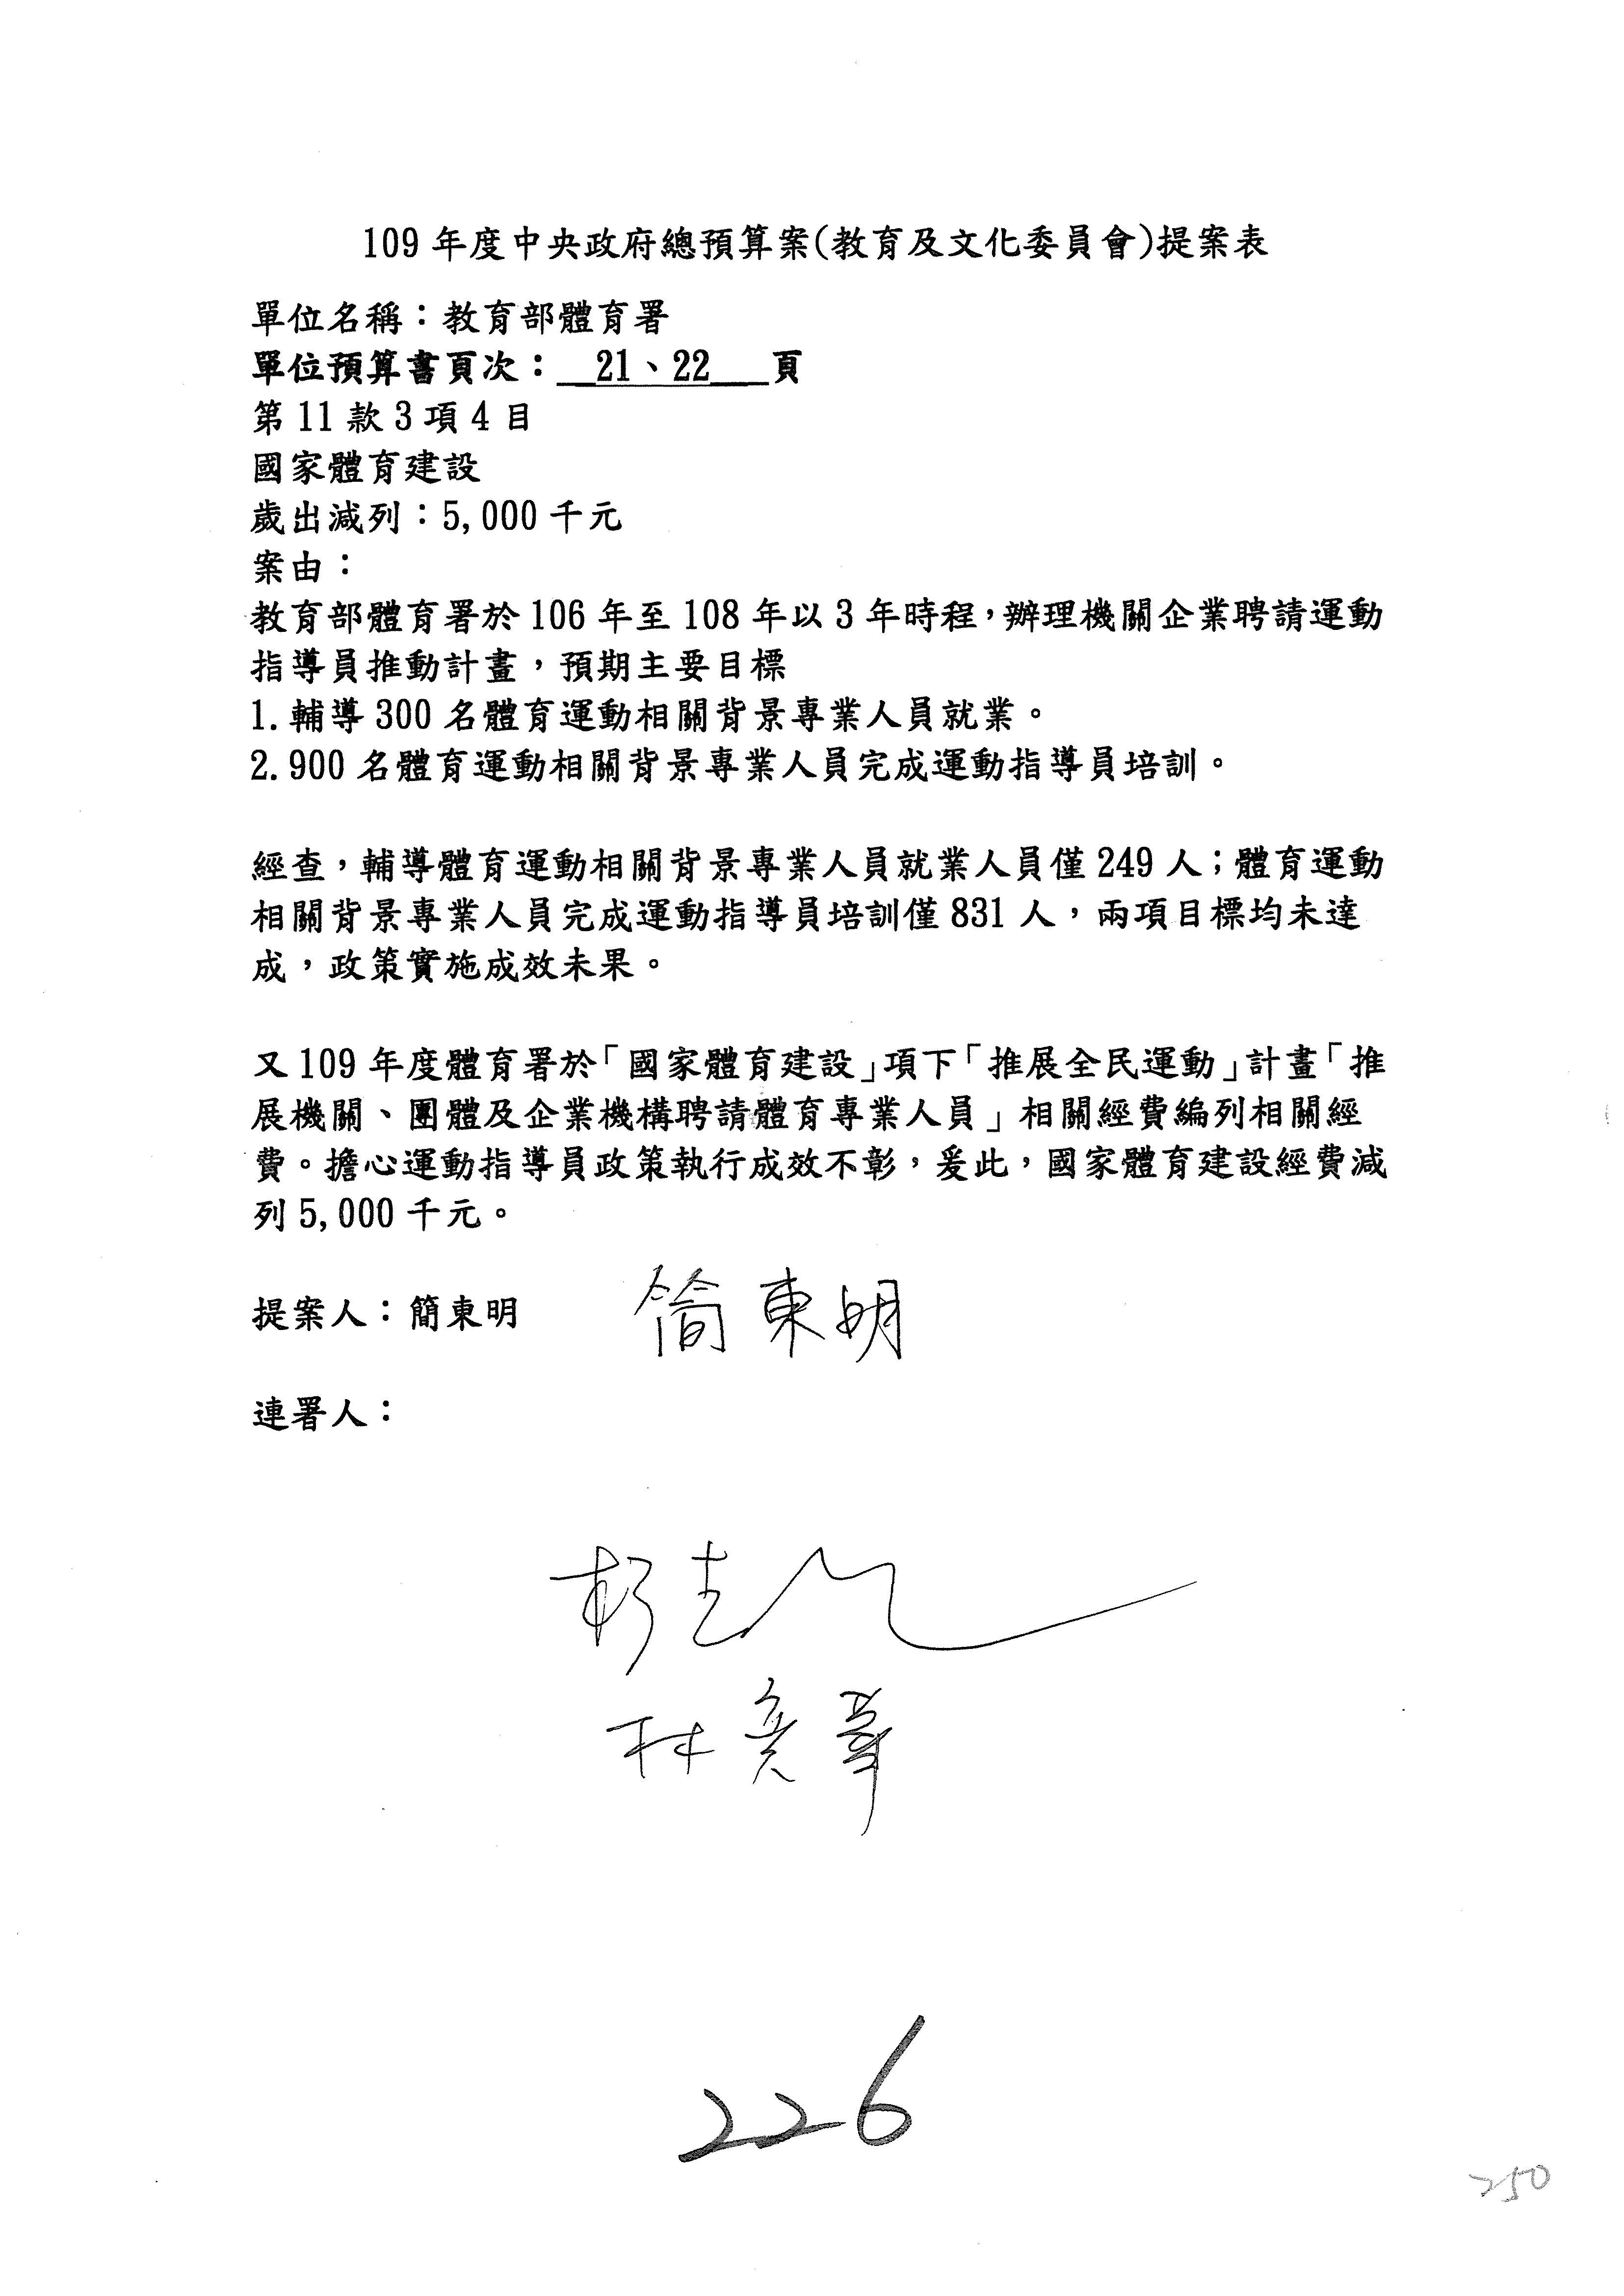 109 年度中央政府總預算案(教育及文化委員會)提案表
單位名稱：教育部體育署
單位預算書頁次：　21、22　頁
第 11 款 3 項 4 目
國家體育建設
歲出減列：5,000 千元
案由：
教育部體育署於 106 年至 108 年以 3 年時程，辦理機關企業聘請運動
指導員推動計畫，預期主要目標
1.輔導 300 名體育運動相關背景專業人員就業。
2.900 名體育運動相關背景專業人員完成運動指導員培訓。
經查，輔導體育運動相關背景專業人員就業人員僅 249 人；體育運動
相關背景專業人員完成運動指導員培訓僅 831 人，兩項目標均未達
成，政策實施成效未果。
又 109 年度體育署於「國家體育建設」項下「推展全民運動」計畫「推
展機關、團體及企業機構聘請體育專業人員」相關經費編列相關經
費。擔心運動指導員政策執行成效不彰，爰此，國家體育建設經費減
列 5,000 千元。
提案人：簡東明　簡東明
連署人：
226
250